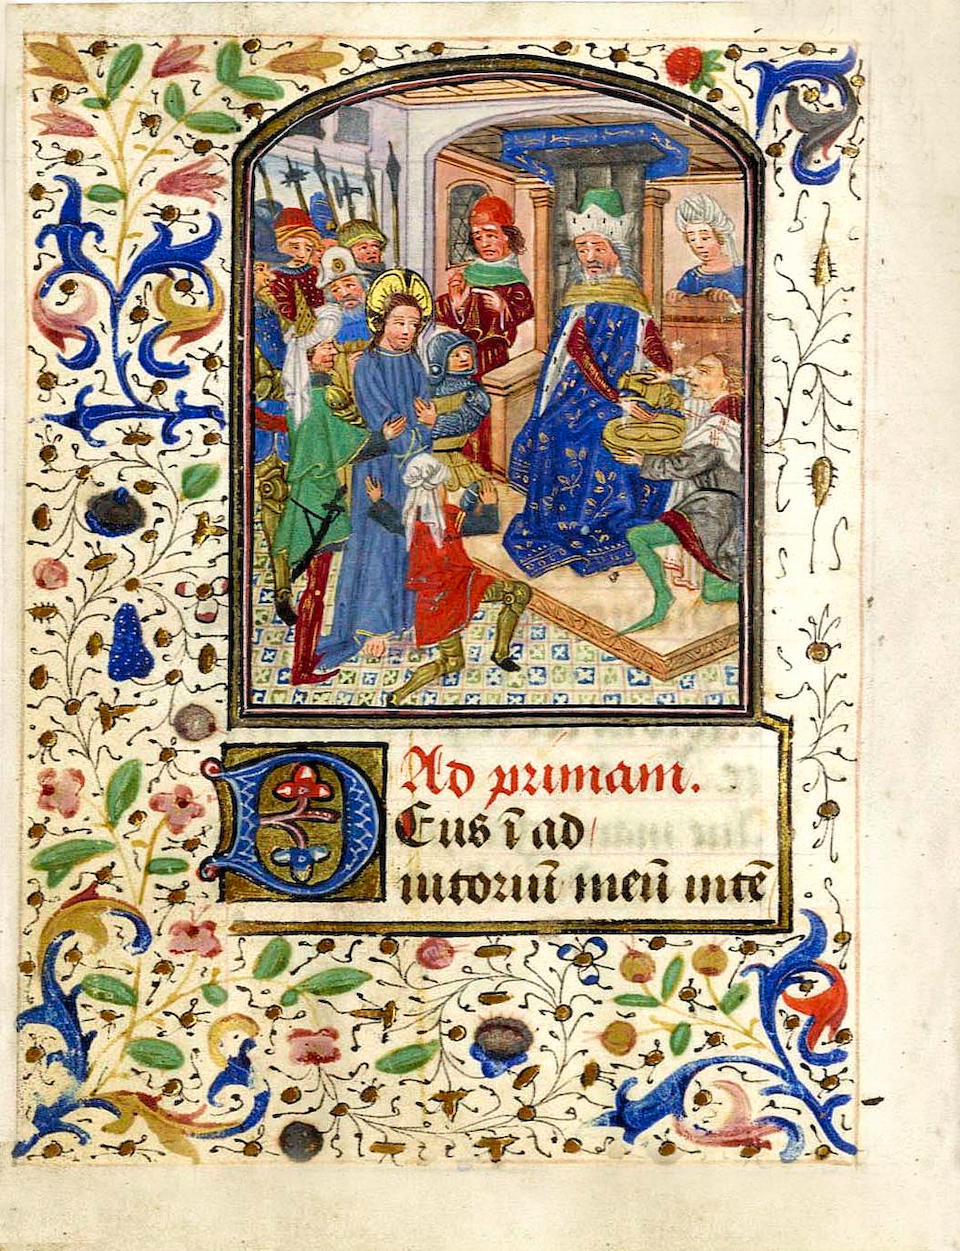 Ad primam.
Deus ī ad
iutoriū meū intē